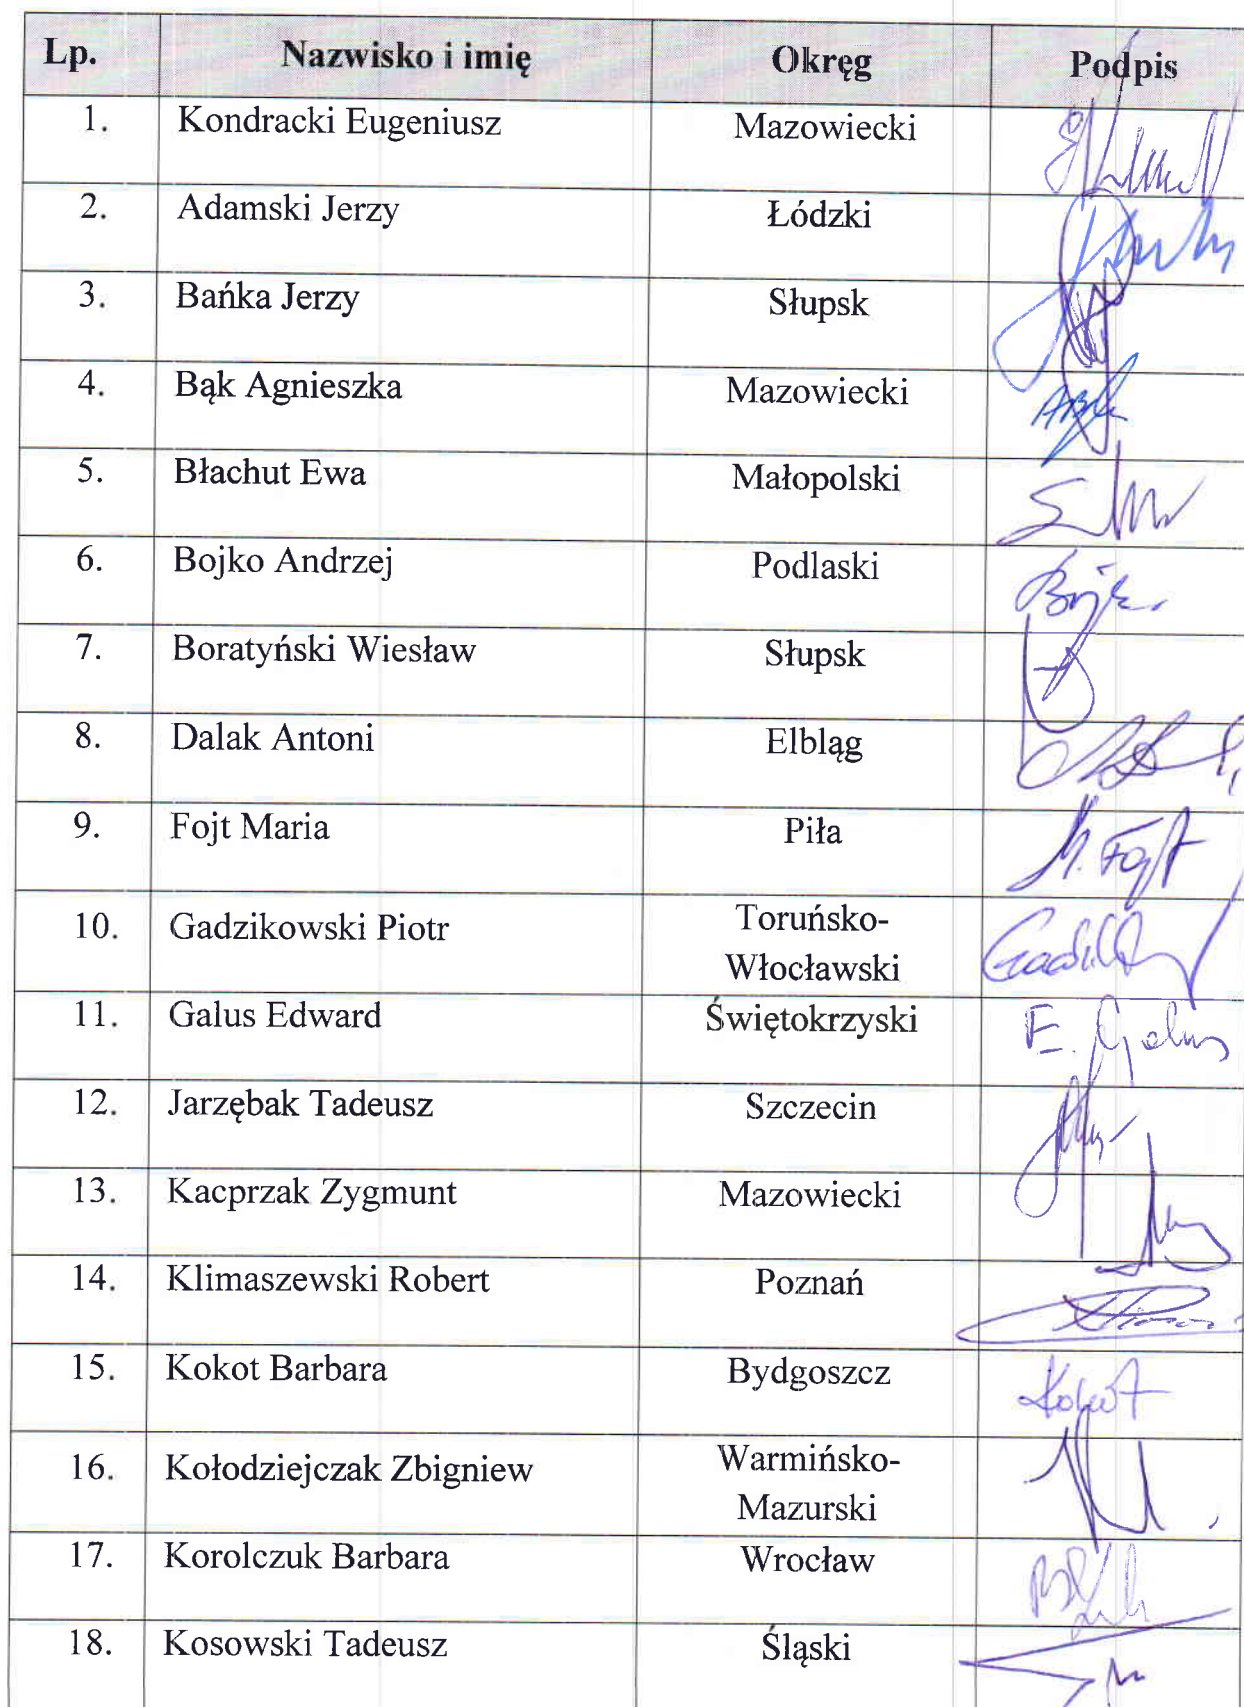 Lp. Nazwisko i imię Okręg Podpis
1. Kondracki Eugeniusz Mazowiecki
2. Adamski Jerzy Łódzki
3. Bańka Jerzy Słupsk
4. Bąk Agnieszka Mazowiecki
5. Błachut Ewa Małopolski
6. Bojko Andrzej Podlaski
7. Boratyński Wiesław Słupsk
8. Dalak Antoni Elbląg
9. Fojt Maria Piła M. Fojt
10. Gadzikowski Piotr Toruńsko-
Włocławski
11. Galus Edward Świętokrzyski E. Galus
12. Jarzębak Tadeusz Szczecin
13. Kacprzak Zygmunt Mazowiecki
14. Klimaszewski Robert Poznań
15. Kokot Barbara Bydgoszcz Kokot
16. Kołodziejczak Zbigniew Warmińsko-
Mazurski
17. Korolczuk Barbara Wrocław
18. Kosowski Tadeusz Śląski